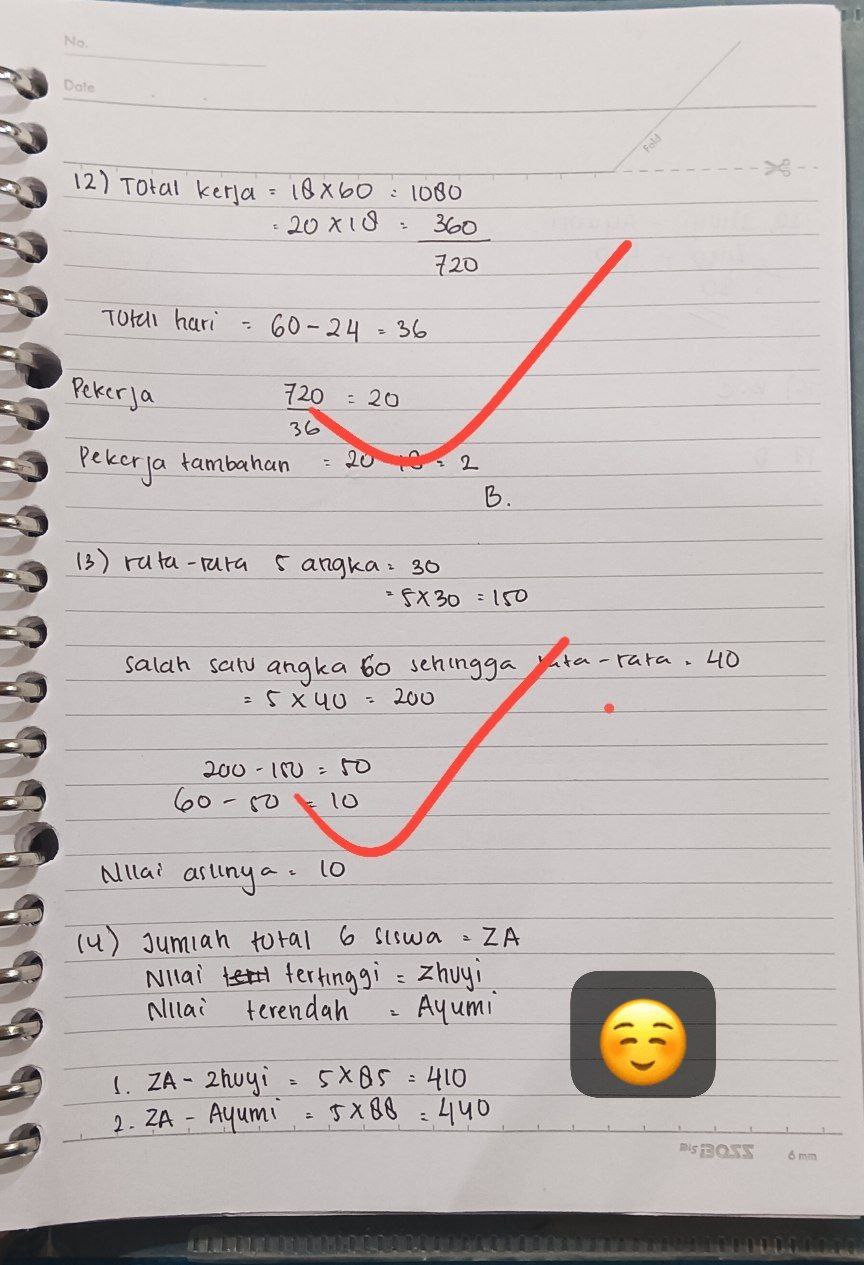 No.
Date
Fold
12) Total kerja = 18 x 60 = 1080
= 20 x 18 = 360
720
Total hari = 60 - 24 = 36
Pekerja 720 = 20
36
Pekerja tambahan = 20 - 18 = 2
B.
13) rata-rata 5 angka = 30
= 5 x 30 = 150
Salah satu angka 60 sehingga rata-rata = 40
= 5 x 40 = 200
200 - 150 = 50
60 - 50 = 10
Nilai aslinya = 10
14) Jumlah total 6 siswa = ZA
Nilai tertinggi = Zhuyi
Nilai terendah = Ayumi
1. ZA - Zhuyi = 5 x 85 = 410
2. ZA - Ayumi = 5 x 88 = 440
BOSS 6 mm